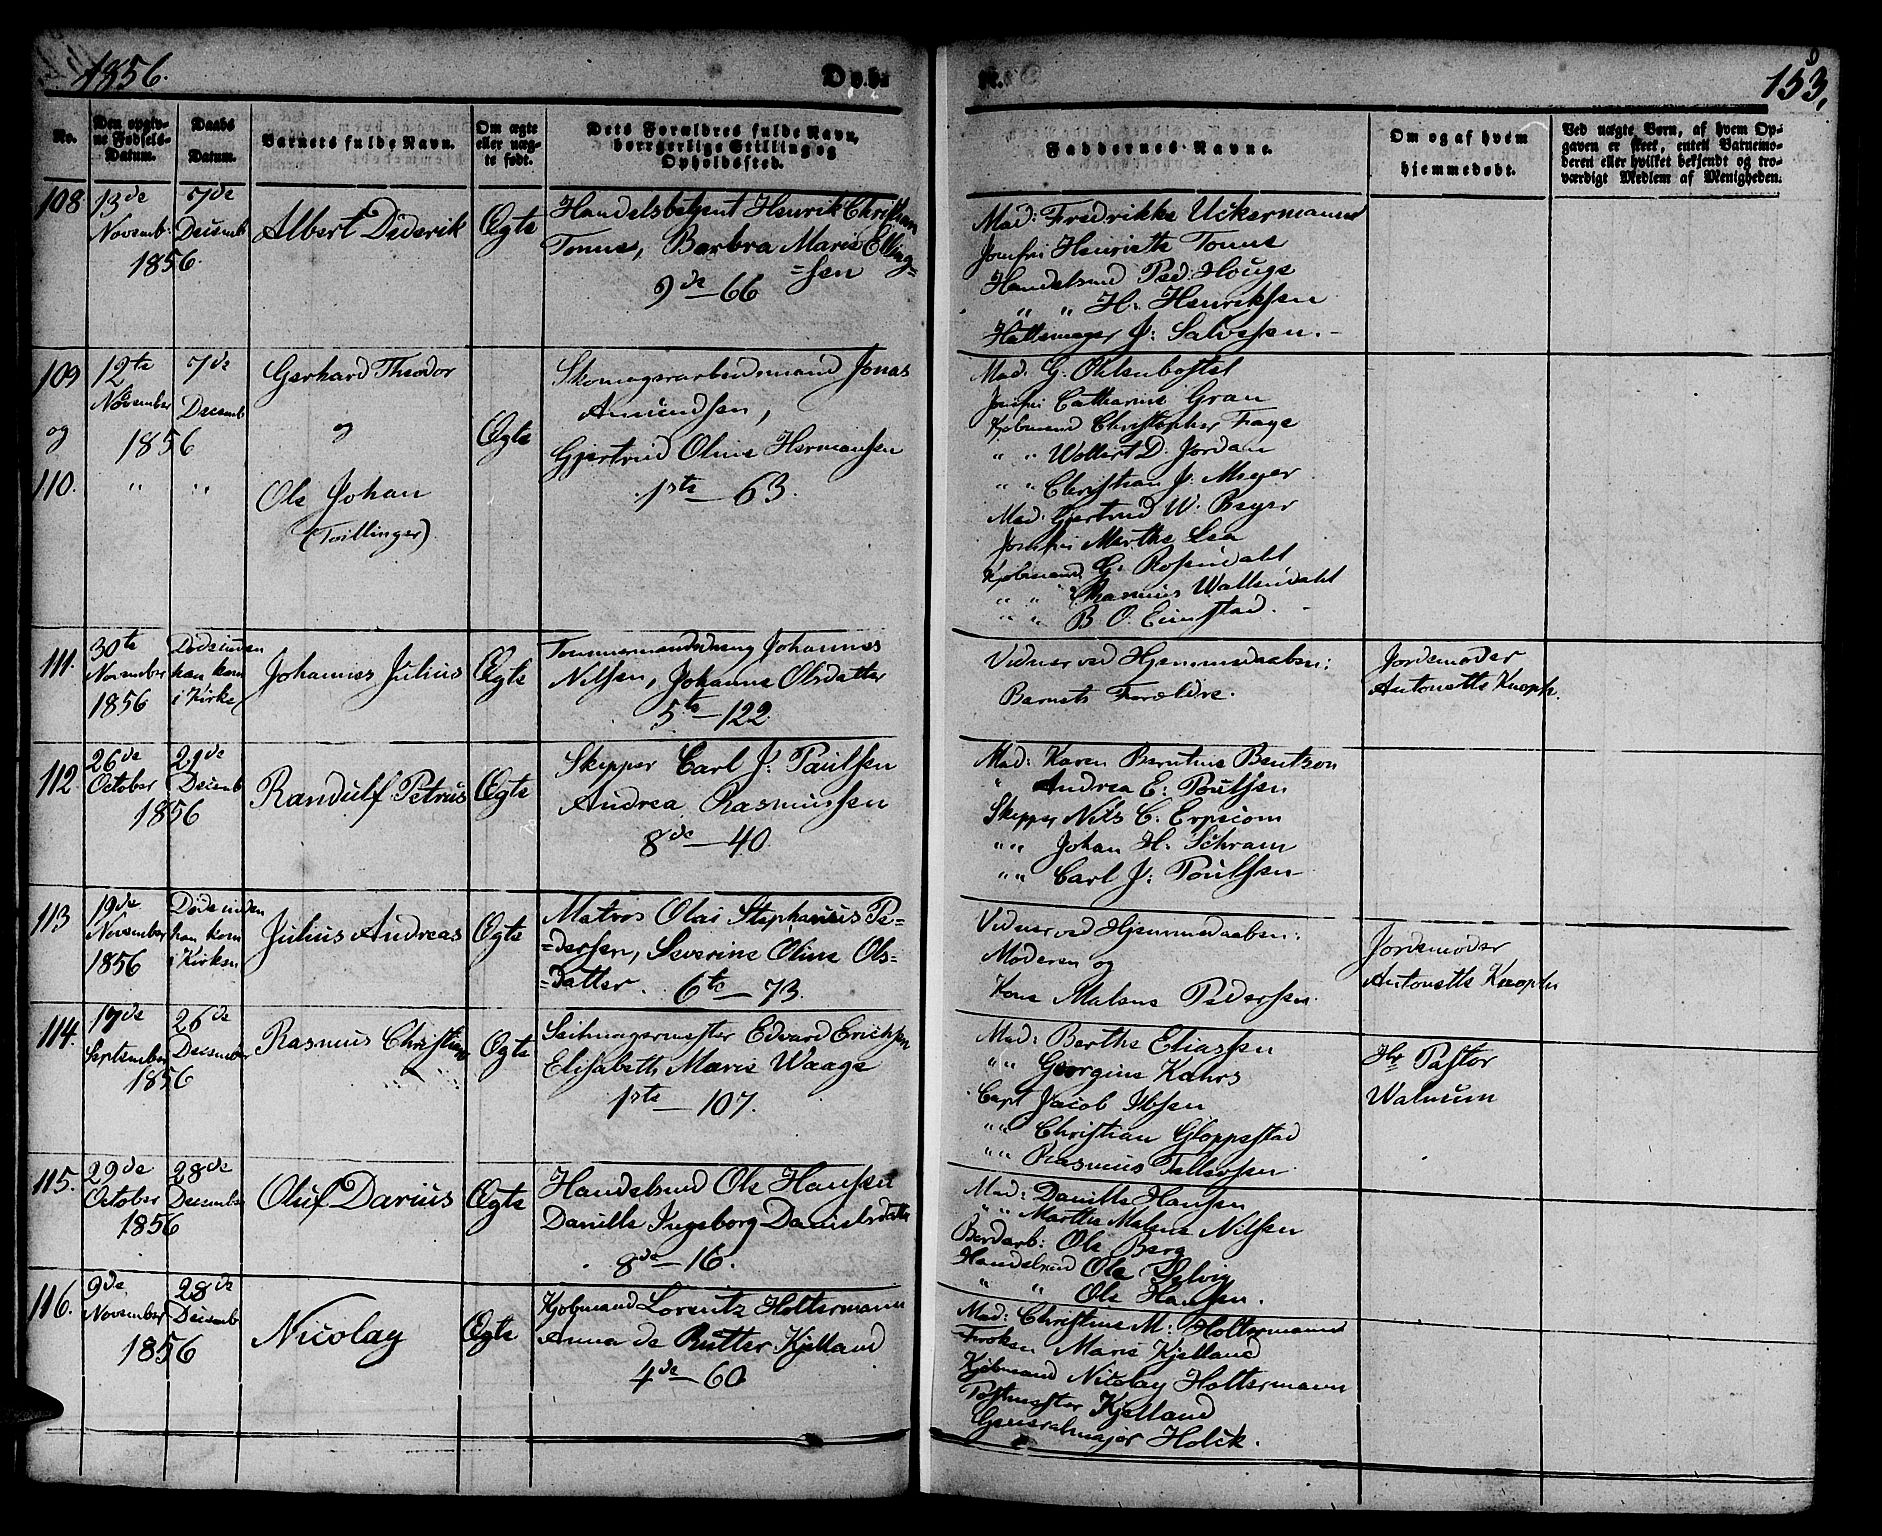 1856.
Døb-
te.
153,
No.
Den opgiv-
ne Fødsels-
Datum.
Daabs
Datum.
Barnets fulde Navn.
Om ægte
eller uæg-
te født.
Dets Foræl­dres fulde Navn,
borgerlige Stilling og
Opholdssted.
Faddernes Navne.
Om og af hvem
hjemmedøbt.
Ved uægte Børn, af hvem Op-
gaven er skeet, enten Barnemo-
deren eller hvilket bekjendt og tro-
værdigt Medlem af Menigheden.
108
13de
Novemb.
1856.
7de
Decemb
Albert Diderik
Ægte
Handelsbetjent Henrik Christian
Tonne, Barbra Marie Elling=
=sen
9de — 66
Mad: Fredrikke Uckermann
Jomfru Henriette Tonne
Handelsmd Ped. Houge
" " H. Henriksen
Hattemager J. Salvesen.
109
og
110.
12te
November
1856
" "
7de
Decemb
" "
Gerhard Theodor
og
Ole Johan
(Tvillinger).
Ægte
Skomagerarbeidsmand Jonas
Amundsen,
Gjertrud Oline Hermansen
1ste — 63.
Mad. G. Ohlenbostel
Jomfru Catharine Gran
Kjøbmand Christopher Faye
" " Wollert D. Jordan
" " Christian J. Meyer
Mad. Gjertrud W. Beyer
Jomfru Marthe Lea
Kjøbmand G. Rosendahl
" " Wallendahl
" " B. O. Einstad.
111.
30te
November
1856
Døde inden
han kom
i Kirke
Johannes Julius
Ægte
Tømmermandsdreng Johannes
Nilsen, Johanne Olsdatter
5te — 122
Vidner ved Hjemmedaaben:
Barnets Forældre.
Jordemoder
Antonette Knoph.
112
26de
October
1856
21de
Decemb
Randulf Petrus
Ægte
Skipper Carl J. Paulsen
Andrea Rasmussen
8de — 40.
Mad: Karen Berntine Bentzon
" Andrea E. Poulsen
Skipper Nils C. Erpecom
" " Johan H. Schram
" " Carl J. Poulsen
113
19de
November
1856
Døde inden
han kom
i Kirken
Julius Andreas
Ægte
Matros Olai Stephanus Pe=
=dersen, Severine Oline Ols=
=datter. 6te — 73.
Vidner ved Hjemmedaaben:
Moderen og
Kone Malene Pedersen.
Jordemoder
Antonette Knoph
114.
17de
September
1856
26de
December
Rasmus Christian
Ægte
Seilmagermester Edvard Ericksen
Elisabeth Marie Waage
1ste — 107.
Mad: Berthe Eliassen
" " Georgine Kahrs
Capt Jacob Ibsen
" " Christian Gloppestad
" " Rasmus Tellefsen
Hr Pastor
Walnum
115.
29de
October
1856
28de
December
Oluf Darius
Ægte
Handelsmd Ole Hansen
Danille Ingeborg Danielsdatter
8de — 16.
Mad: Danille Hansen
" " Marthe Malene Nilsen
Ole Berg
Handelsmd Ole Selvig
" " Ole Hansen.
116.
9de
November
1856
28de
Decemb
Nicolay
Ægte
Kjøbmand Lorentz Holtermann
Anna de Rütter Kjelland
4de — 60
Mad: Christine M: Holtermann
Frøken Marie Kjelland
Kjøbmand Nicolay Holtermann
Postmester Kjelland
Generalmajor Holck.